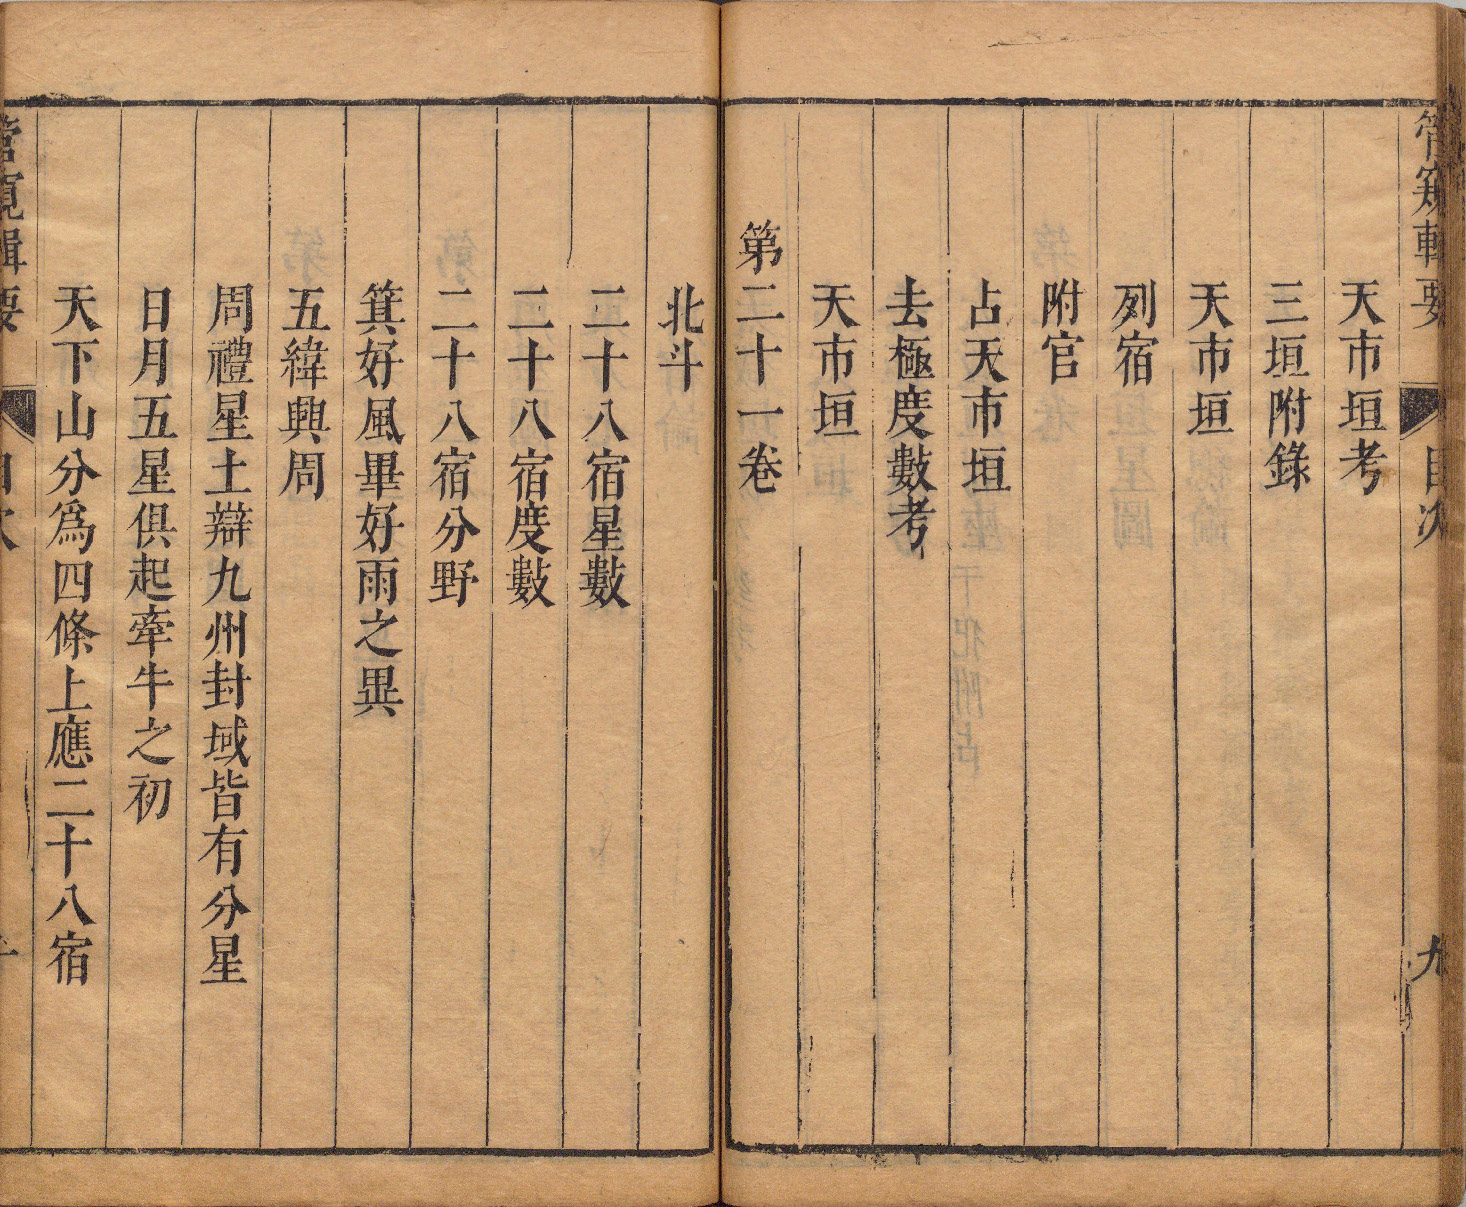 管窺輯要 目次 九
天市垣考
三垣附錄
天市垣
列宿
附官
占天市垣
去極度數考
天市垣
第二十一卷
北斗
二十八宿星數
二十八宿度數
二十八宿分野
箕好風畢好雨之異
五緯興周
周禮星土辯九州封域皆有分星
日月五星俱起牽牛之初
天下山分爲四條上應二十八宿
管窺輯要 目次